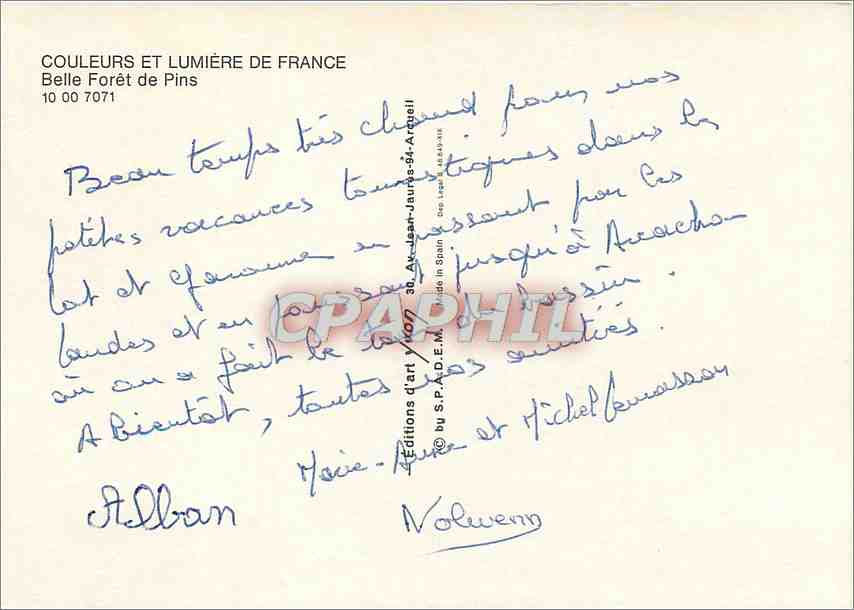 COULEURS ET LUMIÈRE DE FRANCE
Belle Forêt de Pins
10 00 7071
Beau temps très chaud pour nos
petites vacances touristiques dans le
Lot et Garonne en passant par les
Landes et en poussant jusqu'à Arcachon
où on a fait le tour du bassin.
A bientôt, toutes nos amitiés.
Marie-Anne et Michel
Alban
Nolwenn
Editions d'art Yvon 30, Av. Jean-Jaurès-94-Arcueil
© by S.P.A.D.E.M. Made in Spain Dep. Legal B. 46.849-XIX
CPAPHIL